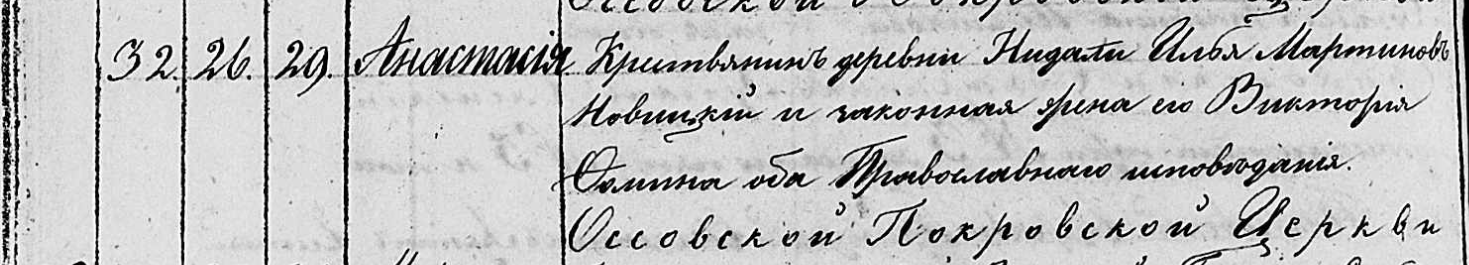 Оссовской Покровской Церкви
32. 26. 29. Анастасія Крестьянинъ деревни Нидали Илья Мартиновъ
Новицкій и законная жена его Викторія
Фомина оба Православнаго исповѣданія.
Оссовской Покровской Церкви